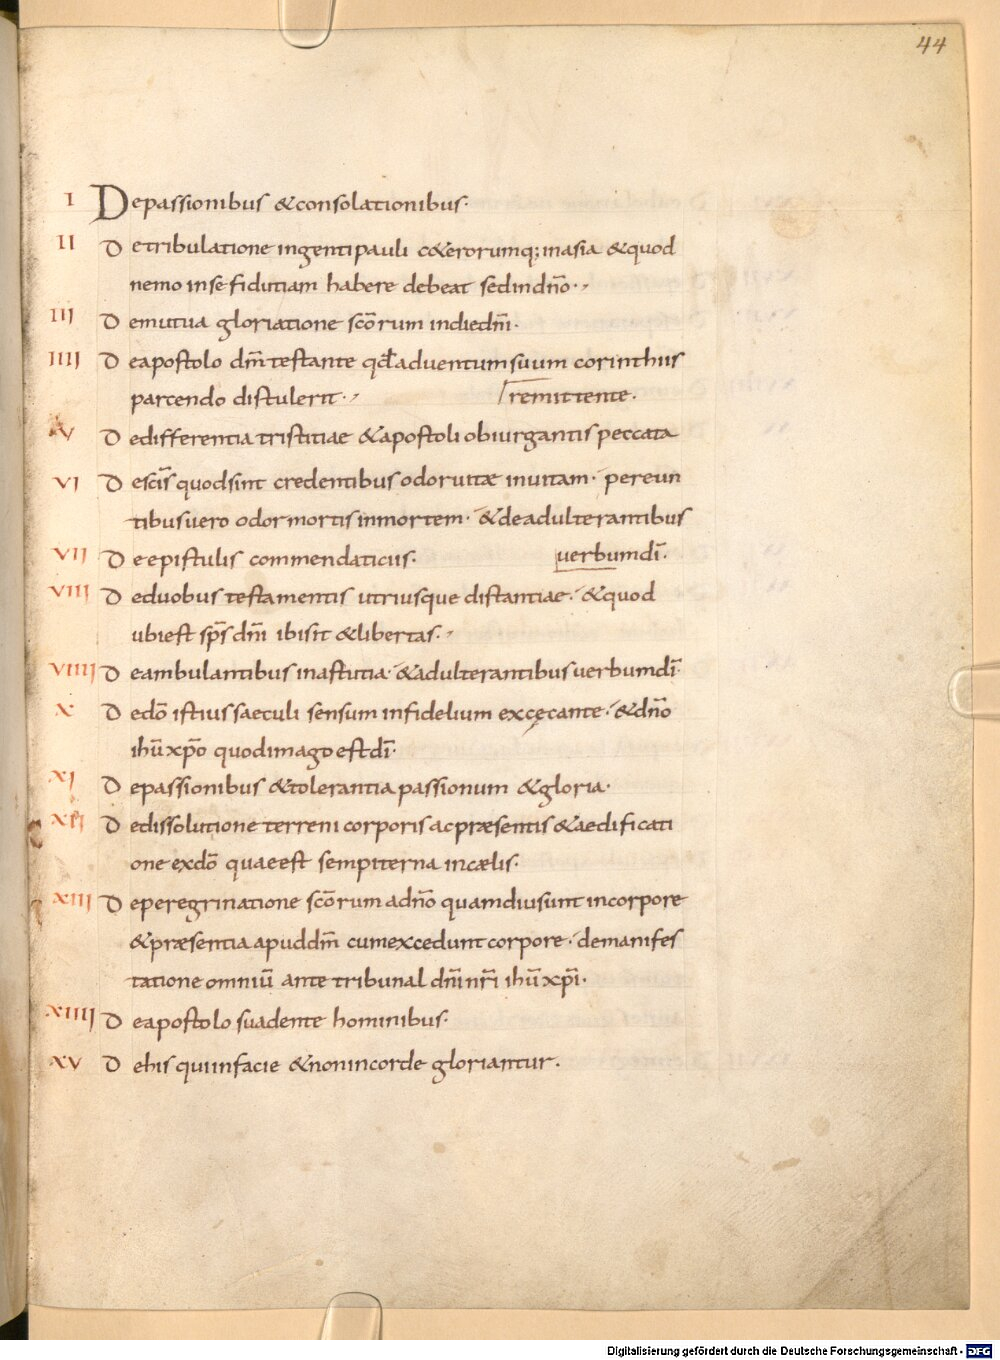 44
I Depassionibus &consolationibus·
II Detribulatione ingenti pauli c&erorumq; inasia &quod
nemo inse fidutiam habere debeat sed indn̄o·,
III Demutua gloriatione sc̄orum in diedn̄i·
IIII Deapostolo dm̄ testante qđ aduentum suum corinthiis
parcendo distulerit·, remittente·
V Dedifferentia tristitiae &apostoli obiurgantis peccata
VI Desc̄is quod sint credentibus odor uitæ inuitam· pereun
tibus uero odor mortis inmortem· &deadulterantibus
VII Deepistulis commendaticiis· uerbumdī·
VIII Deduobus testamentis utriusque distantiae· &quod
ubi est sp̄s dn̄i ibi sit &libertas·,
VIIII Deambulantibus inastutia· &adulterantibus uerbumdī·
X Dedō istius saeculi sensum infidelium excęcante· &dn̄o
ihū xp̄o quod imago est dī·
XI Depassionibus &tolerantia passionum &gloria·
XII Dedissolutione terreni corporis ac præsentis &aedificati
one exdō quae est sempiterna incælis·
XIII Deperegrinatione sc̄orum adn̄o quamdiu sunt incorpore
&præsentia apud dm̄ cum excedunt corpore· demanifes
tatione omniū ante tribunal dn̄i nr̄i ihū xp̄i·
XIIII Deapostolo suadente hominibus·
XV Dehis qui infacie &non incorde gloriantur·
Digitalisierung gefördert durch die Deutsche Forschungsgemeinschaft - DFG